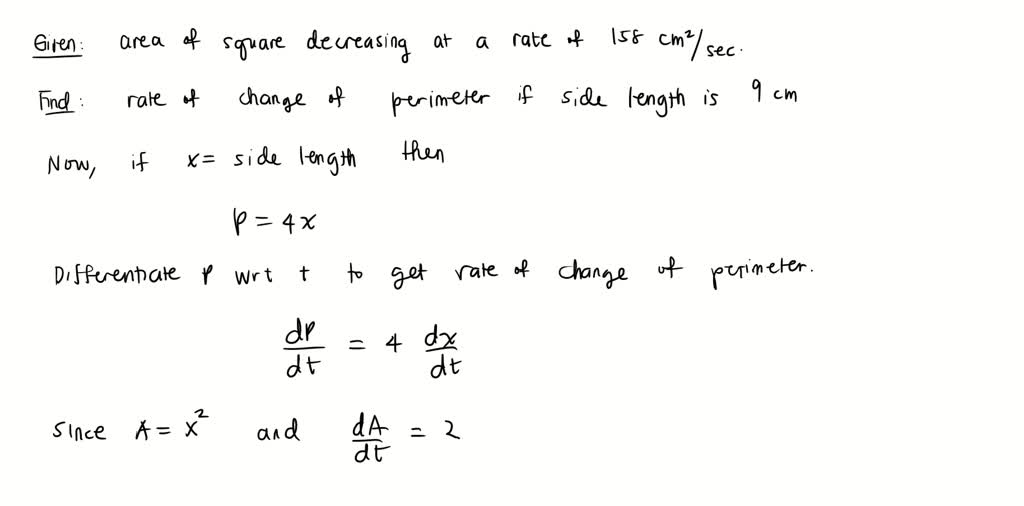 Given: area of square decreasing at a rate of 158 cm²/sec.
Find: rate of change of perimeter if side length is 9 cm
Now, if x = side length then
P = 4x
Differentiate P wrt t to get rate of change of perimeter.
dP/dt = 4 dx/dt
Since A = x² and dA/dt = 2